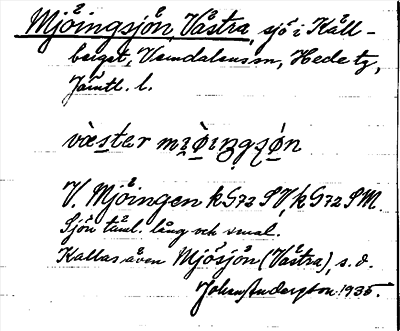 Mjöingsjön, Västra, sjö i Käll-
berget, Vemdalens sn, Hede tg,
Jämtl. l.
væster mjøiŋgʃøn
V. Mjöingen kG72 SV, kG72 SM.
Sjön täml. lång och smal.
Kallas även Mjösjön (Västra), s. d.
Johan Anderston 1935.